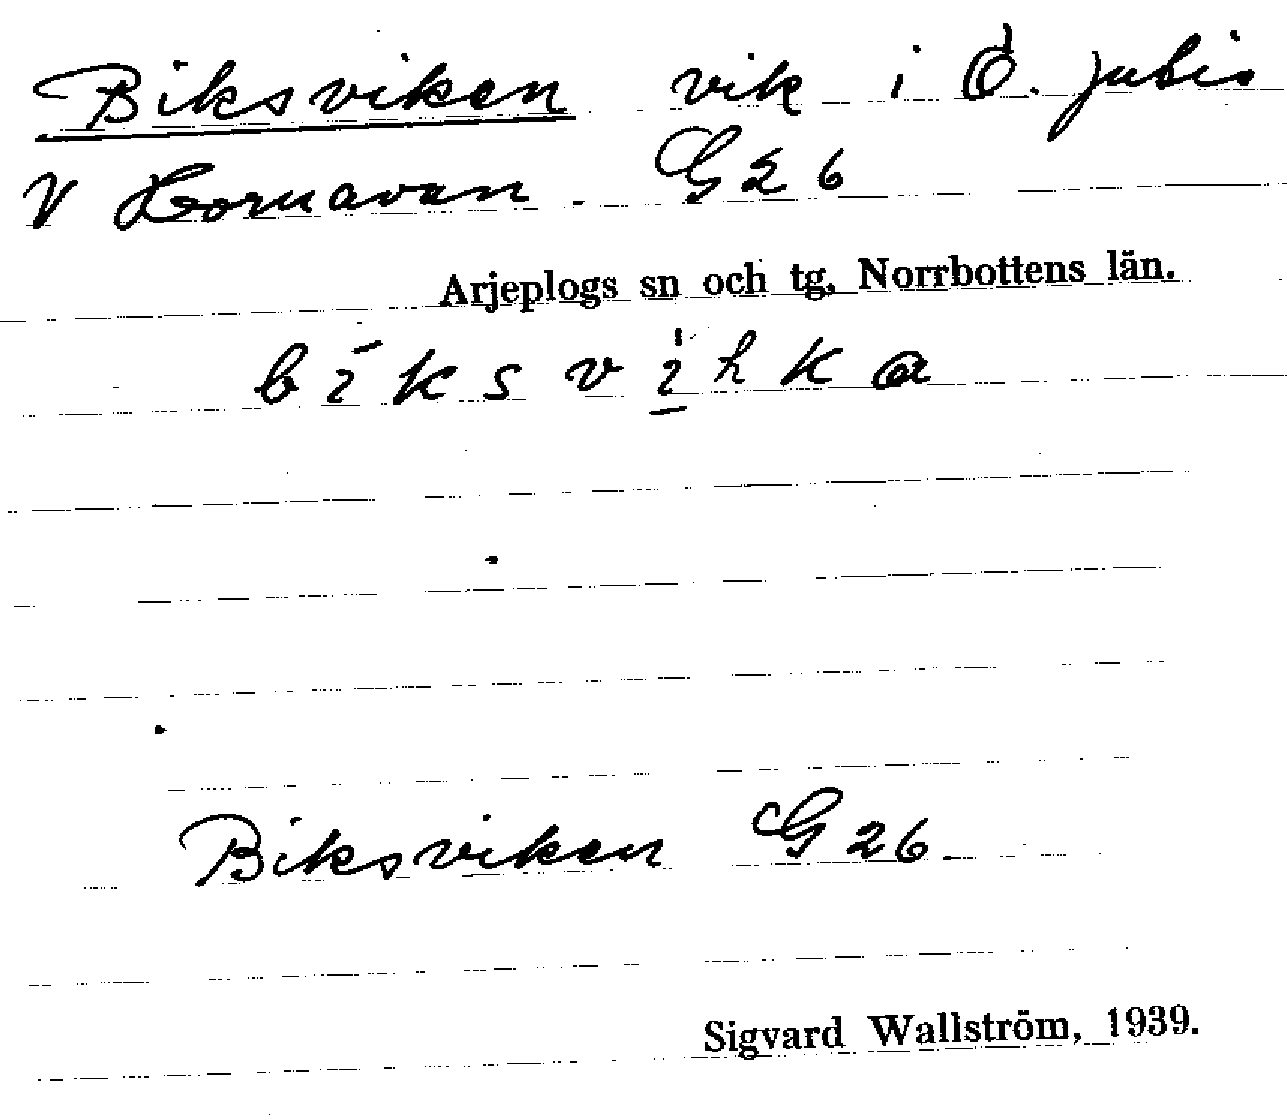 Biksviken vik i Ö. Jutis
V Hornavan G 26
Arjeplogs sn och tg, Norrbottens län.
bīksvi̱hka
Biksviken G 26
Sigvard Wallström, 1939.